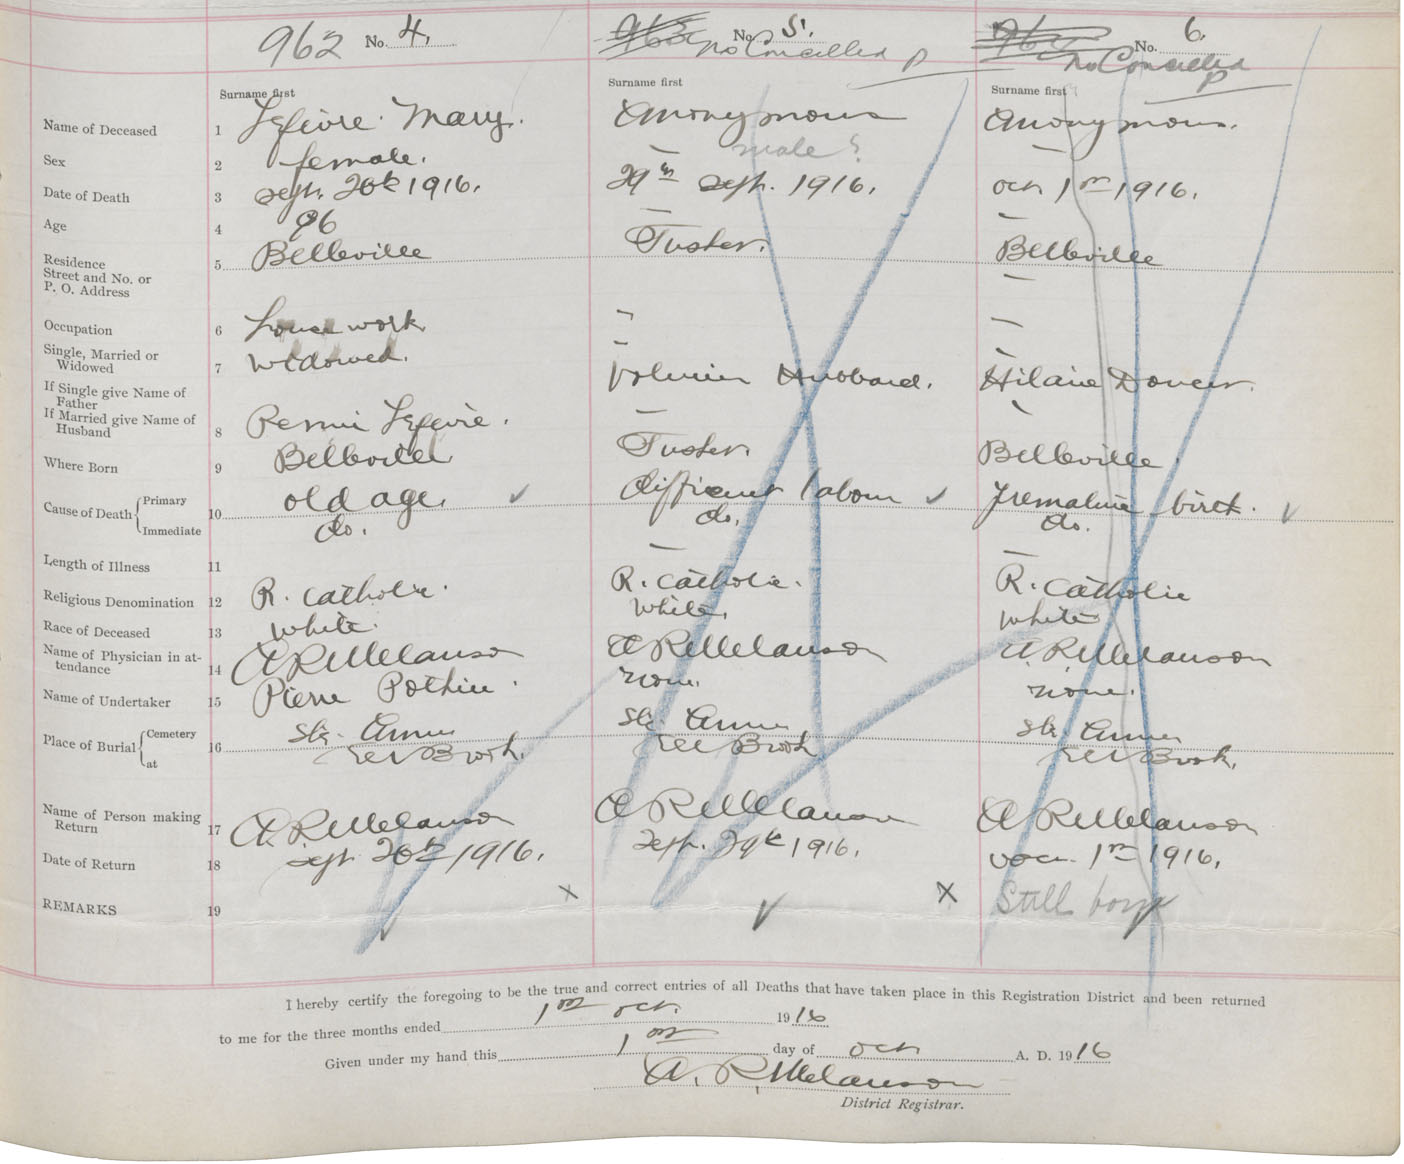 962 No. 4. 963 No. 5. 964 No. 6.
No Cancelled No Cancelled
Surname first Surname first Surname first
Name of Deceased 1 Lefivre Mary. Anonymous Anonymous.
Sex 2 female. — male ? —
Date of Death 3 Sept. 20th 1916. 29th Sept. 1916. Oct 1st 1916.
Age 4 96 — —
Residence 5 Belleville Tusket. Belleville
Street and No. or —
P. O. Address
Occupation 6 house work — —
Single, Married or 7 Widowed. — —
Widowed
If Single give Name of Hubbard. Hilaire Doucet.
Father
If Married give Name of 8 Remi Lefevre. — —
Husband
Where Born 9 Belleville Tusket. Belleville
Cause of Death { Primary 10 old age. ✓ difficult labour ✓ Premature birth. ✓
Immediate do. do. do.
Length of Illness 11 — —
Religious Denomination 12 R. Catholic. R. Catholic. R. Catholic
Race of Deceased 13 White. White. White
Name of Physician in at- 14 A R Melanson A R Melanson A. R. Melanson
tendance
Name of Undertaker 15 Pierre Pothier. none. none.
Place of Burial { Cemetery 16 Ste. Anne Ste. Anne Ste. Anne
at Eel Brook. Eel Brook Eel Brook.
Name of Person making 17 A. R Melanson A R Melanson A R Melanson
Return
Date of Return 18 Sept 20th 1916. Sept. 29th 1916. Oct. 1st 1916.
REMARKS 19 x ✓ x Still born
I hereby certify the foregoing to be the true and correct entries of all Deaths that have taken place in this Registration District and been returned
to me for the three months ended 1st Oct. 1916
Given under my hand this 1st day of Oct A. D. 1916
A. R. Melanson
District Registrar.